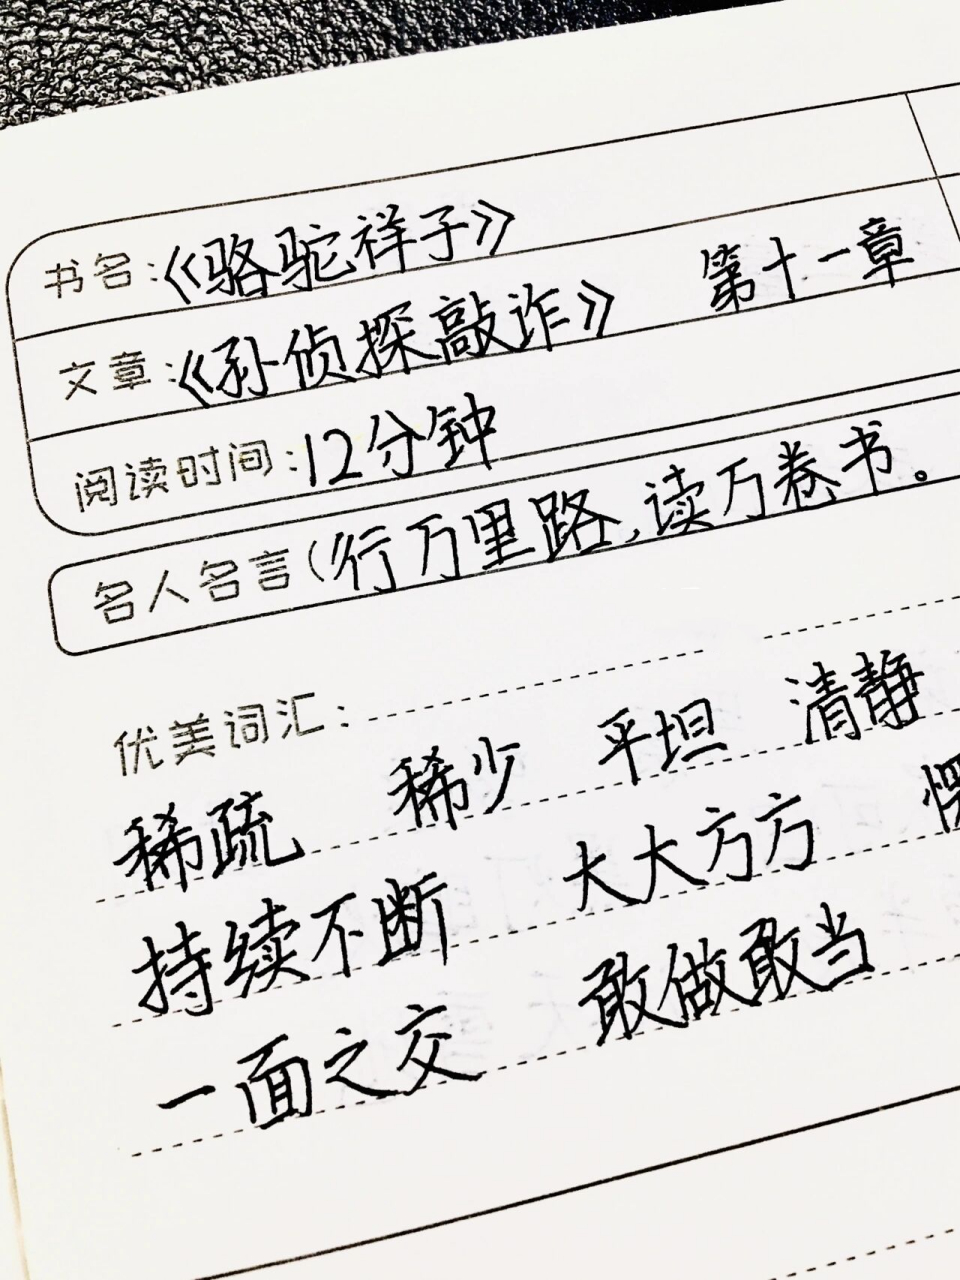 书名:《骆驼祥子》
文章:《孙侦探敲诈》 第十一章
阅读时间:12分钟
名人名言(行万里路,读万卷书。
优美词汇:
稀疏 稀少 平坦 清静
持续不断 大大方方
一面之交 敢做敢当